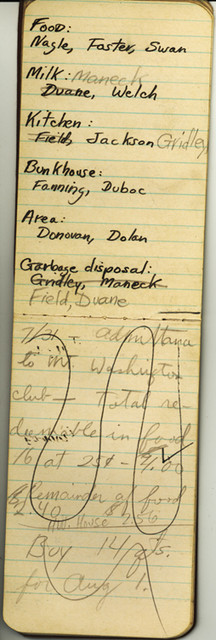 Food:
Nagle, Foster, Swan
Milk: Maneck
Duane, Welch
Kitchen:
Field, Jackson Gridley
Bunkhouse:
Fanning, Duboc
Area:
Donovan, Dolan
Garbage disposal:
Gridley, Maneck
Field, Duane
7/31 - admittana
to Mt Washington
club — Total re-
deemable in food
16 at 25¢ - 4.00
Remainder of food
2.40
House 2.50
Buy 14 pts.
for Aug 1.